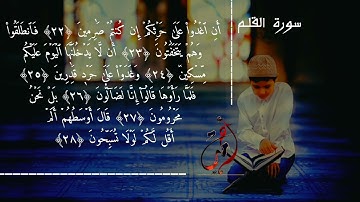 سورة القلم
أَنِ ٱغْدُوا۟ عَلَىٰ حَرْثِكُمْ إِن كُنتُمْ صَٰرِمِينَ ﴿٢٢﴾ فَٱنطَلَقُوا۟
وَهُمْ يَتَخَٰفَتُونَ ﴿٢٣﴾ أَن لَّا يَدْخُلَنَّهَا ٱلْيَوْمَ عَلَيْكُم
مِّسْكِينٌ ﴿٢٤﴾ وَغَدَوْا۟ عَلَىٰ حَرْدٍ قَٰدِرِينَ ﴿٢٥﴾
فَلَمَّا رَأَوْهَا قَالُوٓا۟ إِنَّا لَضَآلُّونَ ﴿٢٦﴾ بَلْ نَحْنُ
مَحْرُومُونَ ﴿٢٧﴾ قَالَ أَوْسَطُهُمْ أَلَمْ
أَقُل لَّكُمْ لَوْلَا تُسَبِّحُونَ ﴿٢٨﴾